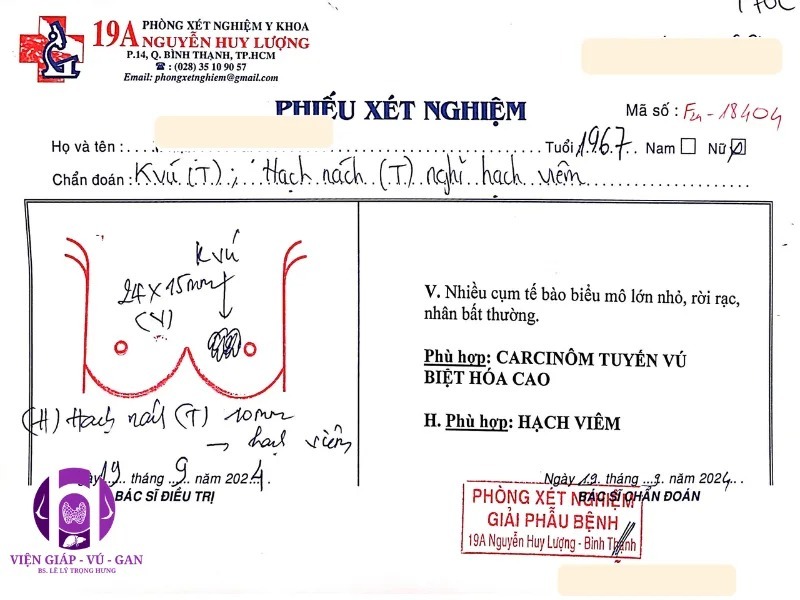 PHÒNG XÉT NGHIỆM Y KHOA
19A NGUYỄN HUY LƯỢNG
P.14, Q. BÌNH THẠNH, TP.HCM
☎ : (028) 35 10 90 57
Email: phongxetnghiem@gmail.com
PHIẾU XÉT NGHIỆM
Mã số : F24-18404
Họ và tên : Tuổi 1967 Nam Nữ
Chẩn đoán : K vú (T) ; Hạch nách (T) nghi hạch viêm
K vú
24 x 15mm
(V)
(H) Hạch nách (T) 10mm
→ hạch viêm
V. Nhiều cụm tế bào biểu mô lớn nhỏ, rời rạc,
nhân bất thường.
Phù hợp: CARCINÔM TUYẾN VÚ
BIỆT HÓA CAO
H. Phù hợp: HẠCH VIÊM
19 tháng 9 năm 2024
BÁC SĨ ĐIỀU TRỊ
Ngày 19 tháng 9 năm 2024
BÁC SĨ CHẨN ĐOÁN
PHÒNG XÉT NGHIỆM
GIẢI PHẪU BỆNH
19A Nguyễn Huy Lượng - Bình Thạnh
VIỆN GIÁP - VÚ - GAN
BS. LÊ LÝ TRỌNG HƯNG